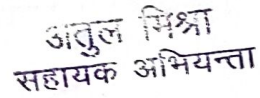 अतुल मिश्रा
सहायक अभियन्ता